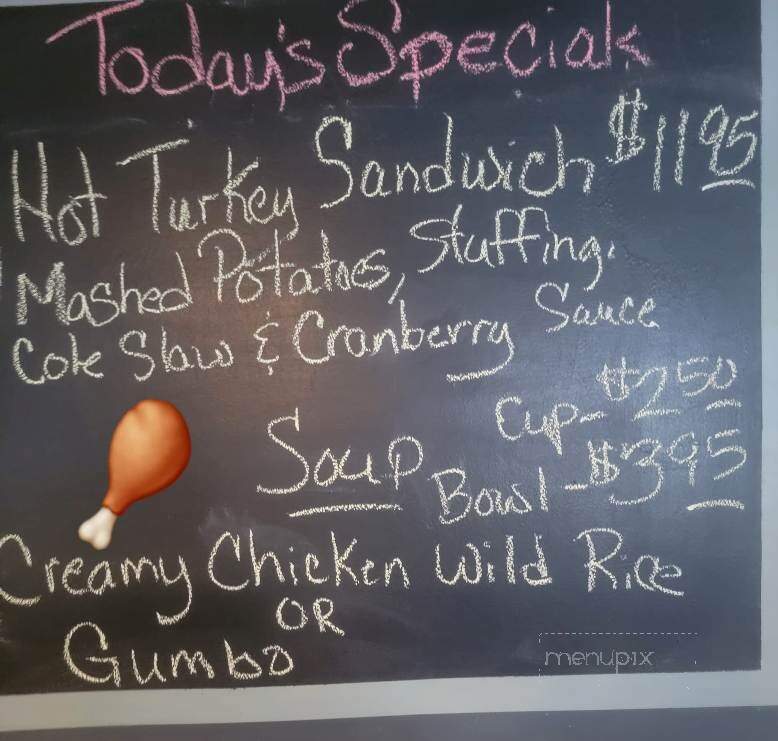 Today's Specials
Hot Turkey Sandwich $11.95
Mashed Potatoes, Stuffing.
Cole Slaw & Cranberry Sauce
Soup
Cup- $2.50
Bowl - $3.95
Creamy Chicken Wild Rice
OR
Gumbo
menupix